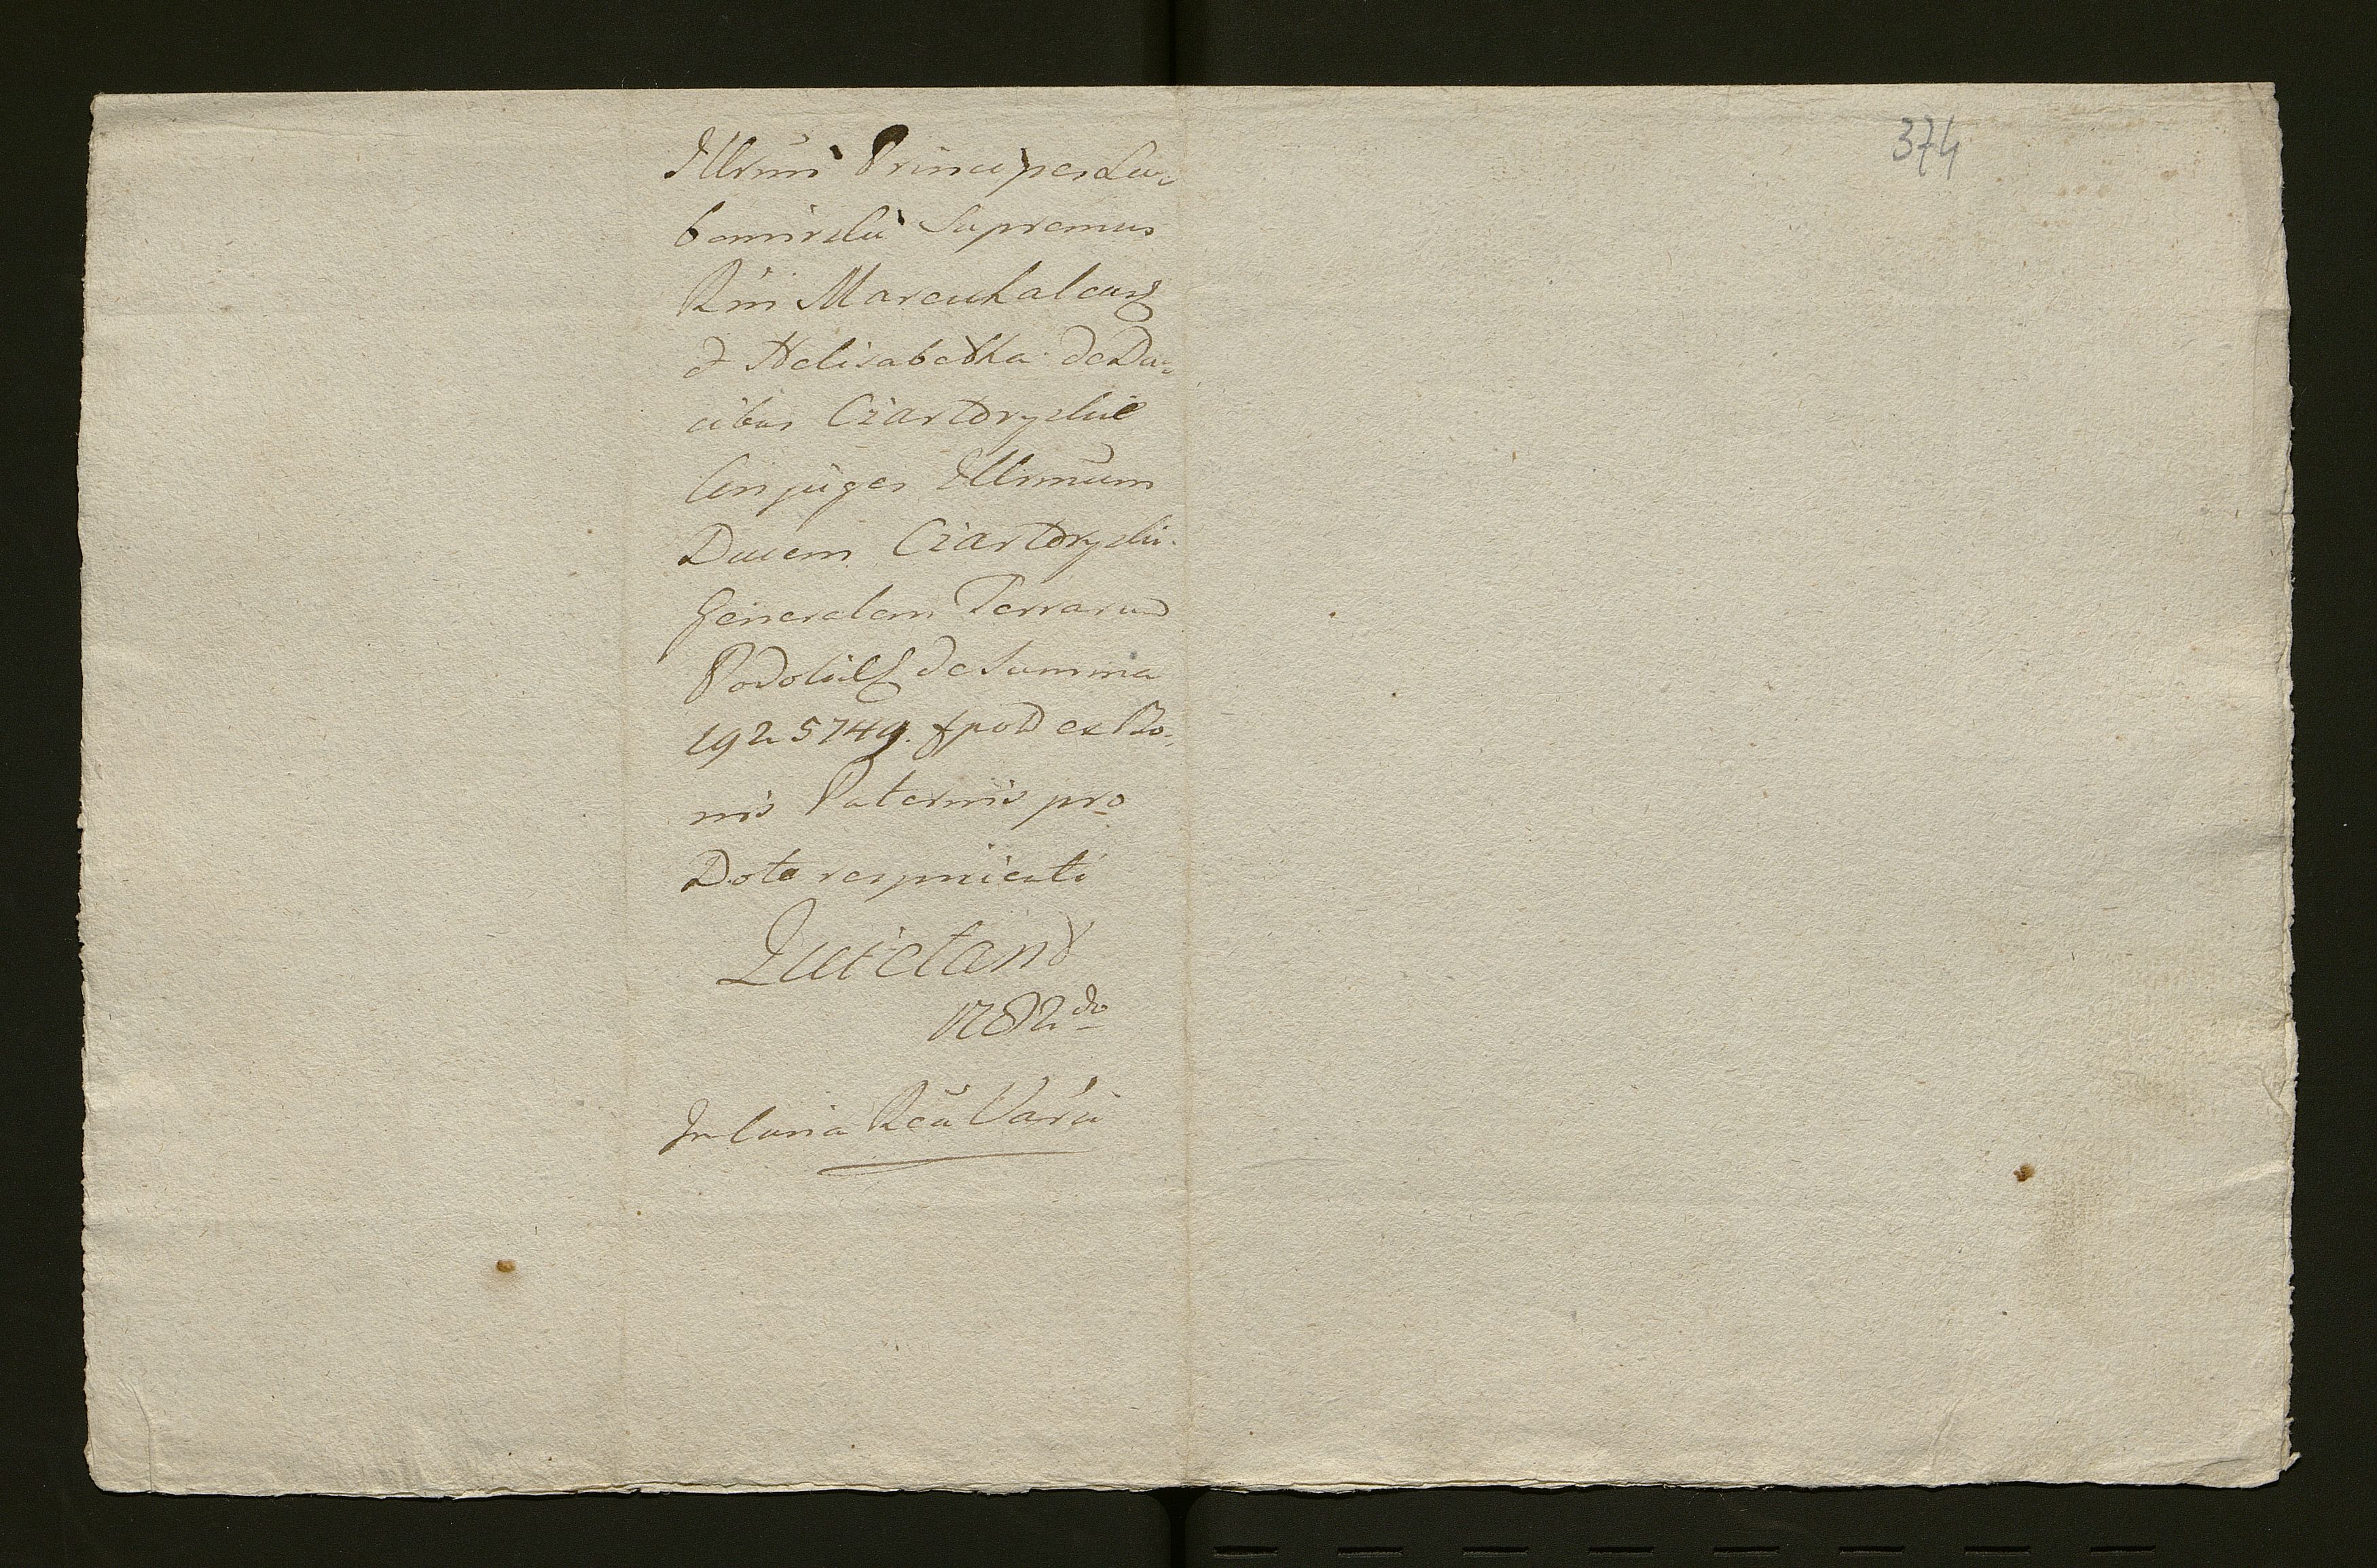 374
Illrmi Principes Lu-
bomirscii Supremus
Rni Marcuhalcus
& Helisabetha de Du-
cibus Czartoryscie
Conjuges Illrmum
Ducem Czartoryscii
Generalem Terrarum
Podoliae de Summa
1925749. fpol ex Bo-
nis Paternis pro
Dote respicienti
Quietant
1782do
In Curia Rea Varsi